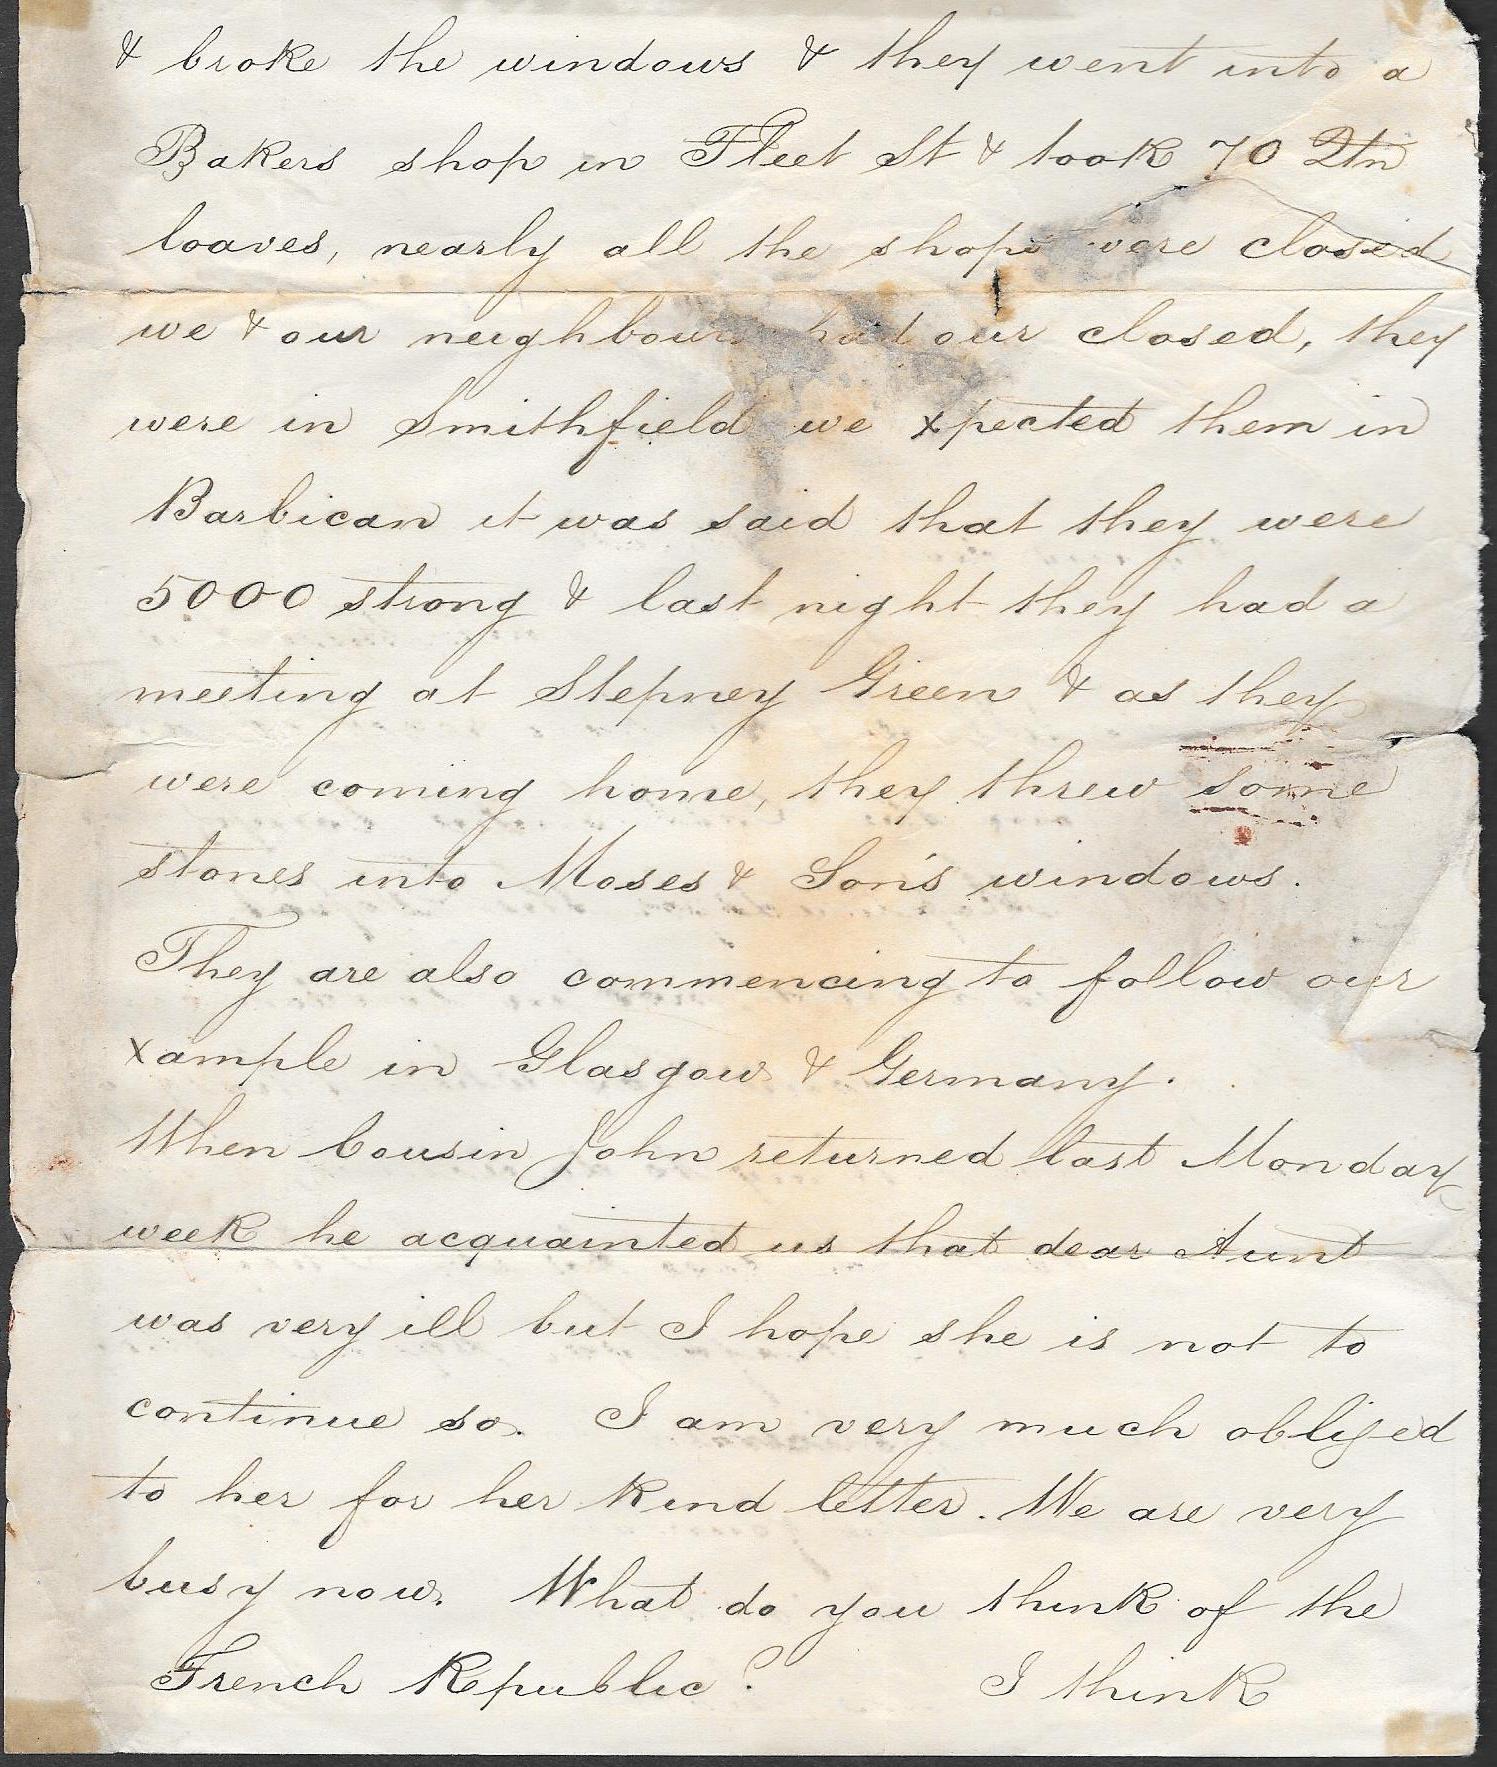 & broke the windows & they went into a
Bakers shop in Fleet St & took 70 Qtn
loaves, nearly all the shops were closed
we & our neighbours had our closed, they
were in Smithfield we xpected them in
Barbican it was said that they were
5000 strong & last night they had a
meeting at Stepney Green & as they
were coming home, they threw some
stones into Moses & Son's windows.
They are also commencing to follow our
xample in Glasgow & Germany.
When Cousin John returned last Monday
week he acquainted us that dear Aunt
was very ill but I hope she is not to
continue so. I am very much obliged
to her for her kind letter. We are very
busy now. What do you think of the
French Republic? I think